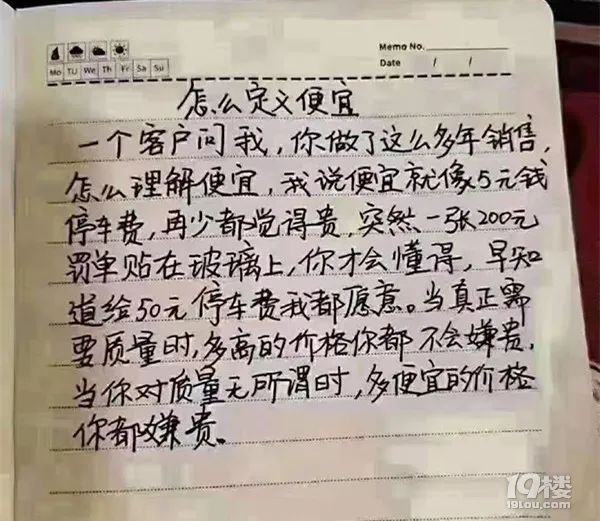 Memo No.
Mo Tu We Th Fr Sa Su
Date / /
怎么定义便宜
一个客户问我，你做了这么多年销售，
怎么理解便宜，我说便宜就像5元钱
停车费，再少都觉得贵，突然一张200元
罚单贴在玻璃上，你才会懂得，早知
道给50元停车费我都愿意。当真正需
要质量时，多高的价格你都不会嫌贵，
当你对质量无所谓时，多便宜的价格
你都嫌贵。
19楼
19lou.com